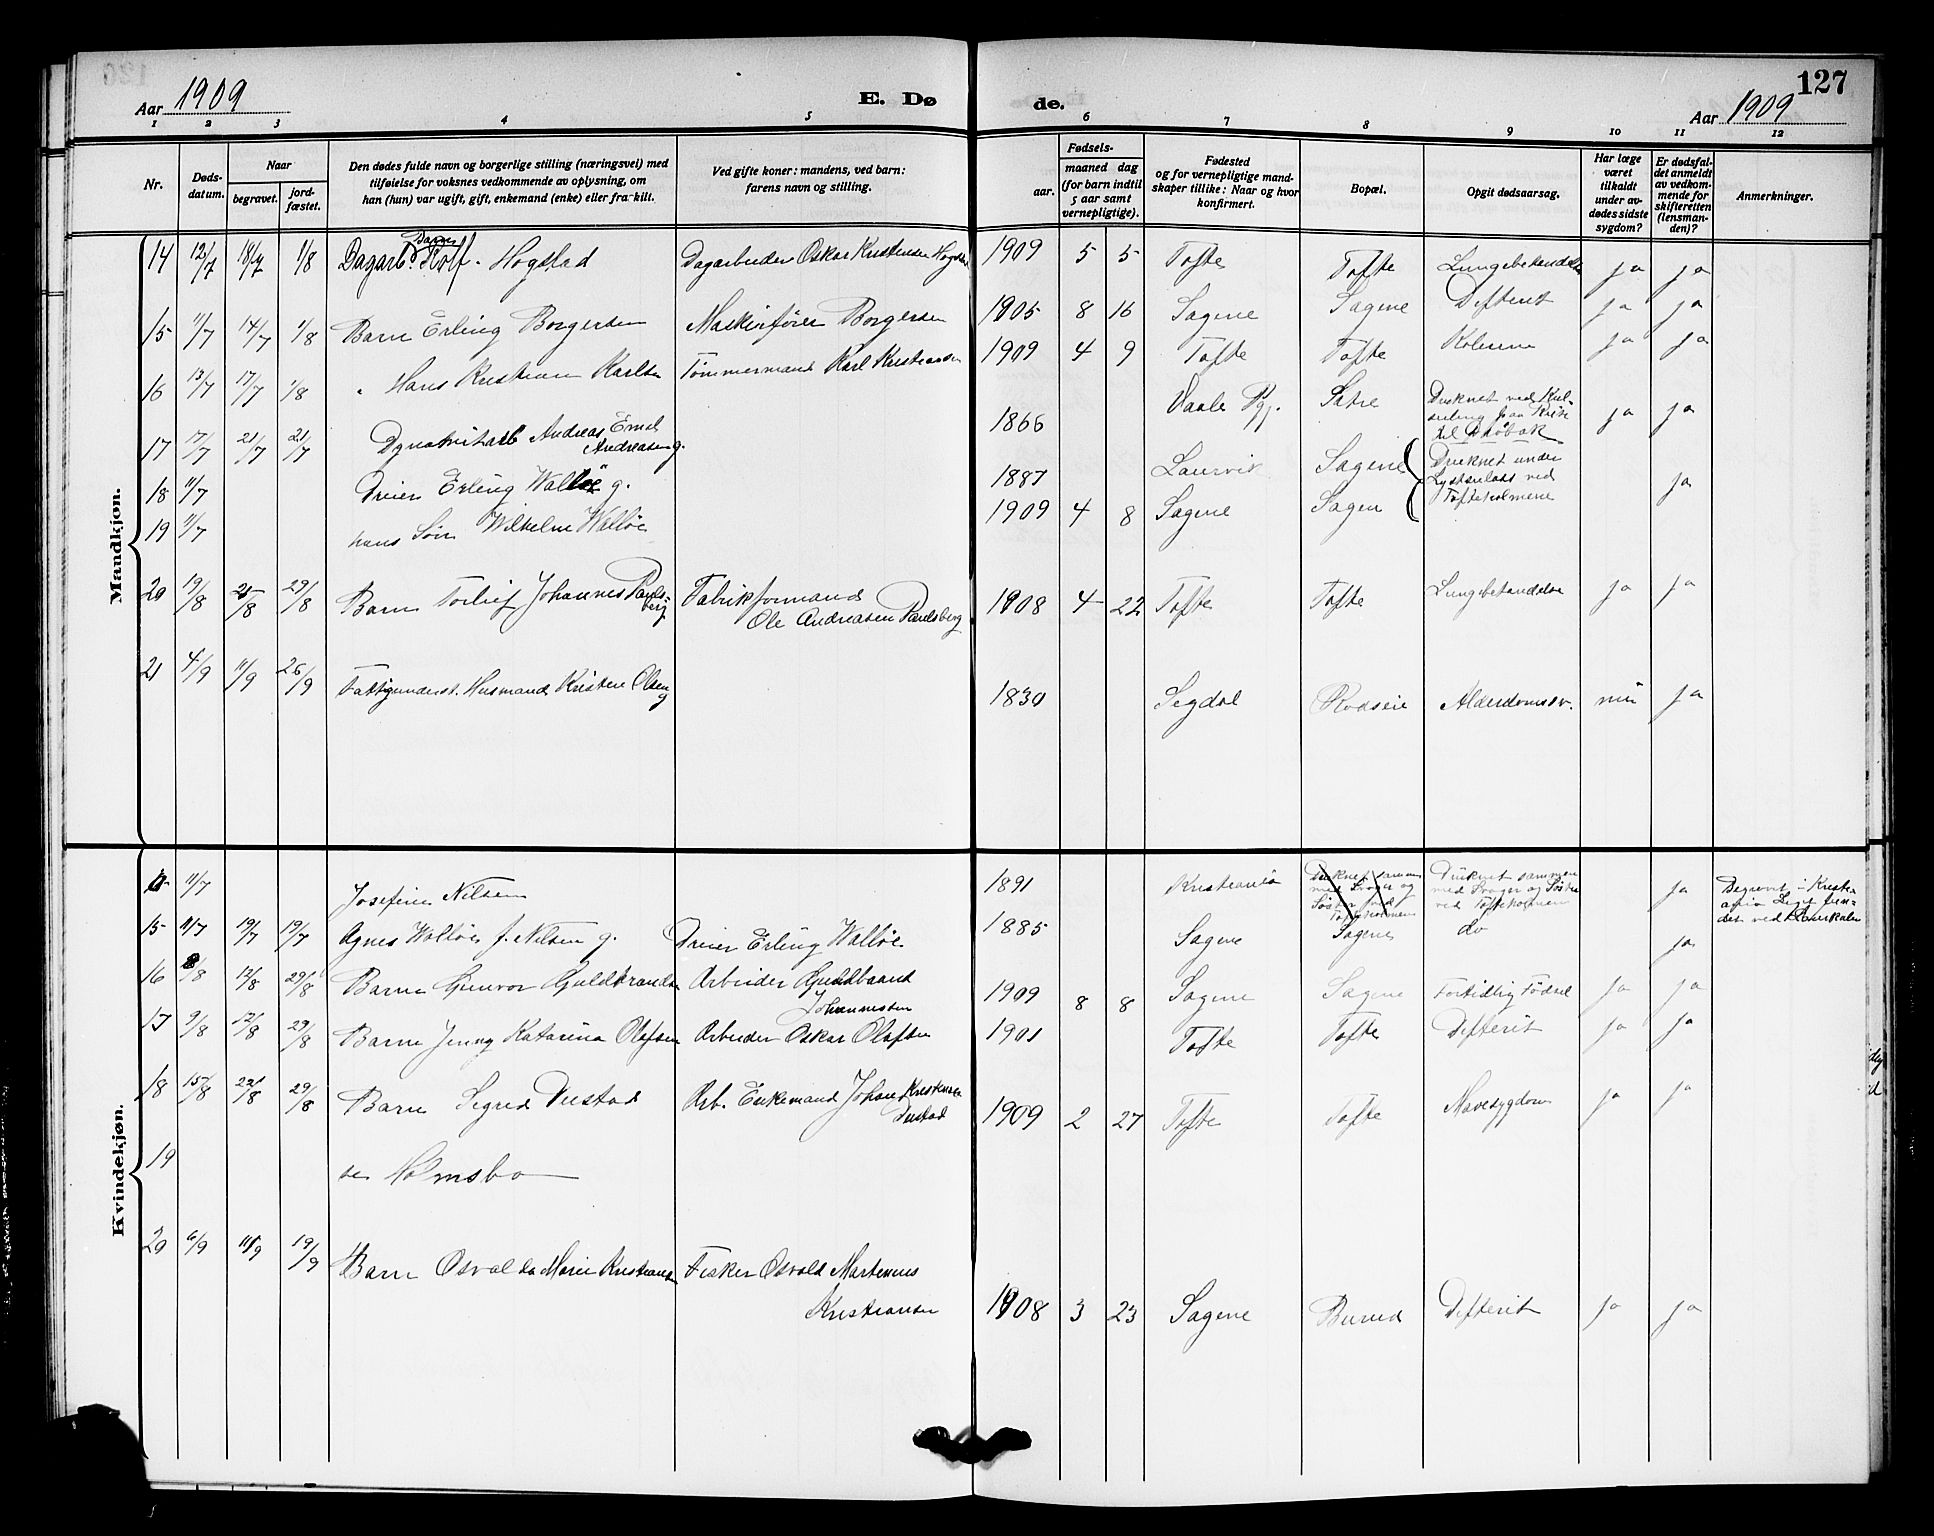 127
Aar 1909
E. Dø
de.
Aar 1909
1 2 3 4 5 6 7 8 9 10 11 12
Nr.
Døds-
datum.
Naar
begravet.
jord-
fæstet.
Den dødes fulde navn og borgerlige stilling (næringsvei) med
tilføielse for voksnes vedkommende av oplysning, om
han (hun) var ugift, gift, enkemand (enke) eller fraskilt.
Ved gifte koner: mandens, ved barn:
farens navn og stilling.
Fødsels-
aar.
maaned dag
(for barn indtil
5 aar samt
vernepligtige).
Fødested
og for vernepligtige mand-
skaper tillike: Naar og hvor
konfirmert.
Bopæl.
Opgit dødsaarsag.
Har læge
været
tilkaldt
under av-
dødes sidste
sygdom?
Er dødsfal-
det anmeldt
av vedkom-
mende for
skifteretten
(lensman-
den)?
Anmerkninger.
Mandkjøn.
Barn
14 12/7 18/7 1/8 Dagarb. Rolf Hogstad Dagarbeider Oskar Kristensen Hogstad 1909 5 5 Tofte Tofte Lungebetændelse ja ja
15 11/7 14/7 1/8 Barn Erling Borgersen Maskinfører Borgersen 1905 8 16 Sagene Sagene Difterit ja ja
16 13/7 17/7 1/8 " Hans Kristian Karlsen Tømmermand Karl Kristiansen 1909 4 9 Tofte Tofte Kolerine ja ja
17 17/7 21/7 21/7 Dynamitarb Andreas Emil
Andreasen g. 1866 Vaale Pgj. Sætre Druknet ved Kul-
seiling fra
til Drøbak ja ja
18 11/7 Dreier Erling Walløe g. 1887 Laurvik Sagene Druknet under
Lystseilads ved
Tofteholmene ja
19 11/7 hans Søn Wilhelm Walløe 1909 4 8 Sagene Sagene
20 19/8 25/8 29/8 Barn Torleif Johannes Pauls-
berg Fabrikformand
Ole Andreasen Paulsberg 1908 4 22 Tofte Tofte Lungebetændelse ja ja
21 4/9 11/9 26/9 Fattigunderst. Husmand Kristen Olsen
g 1830 Sigdal Rødseie Alderdomssv. nei ja
Kvindekjøn.
11/7 Josefine Nilsen 1891 Kristiania Druknet sammen
med Svoger og
Søster ved
Tofteholmen Druknet sammen
med Svoger og Søster
ved Tofteholmen ja Begravet i Kristi-
ania Liget fun-
det ved
15 11/7 19/7 19/7 Agnes Walløe f. Nilsen g. Dreier Erling Walløe 1885 Sagene Sagene do ja
16 8/8 12/8 29/8 Barn Gunvor Guldbrandsen Arbeider Guldbrand
Johannesen 1909 8 8 Sagene Sagene Fortidlig Fødsel ja ja
17 9/8 12/8 29/8 Barn Jenny Katarina Olafsen Arbeider Oskar Olafsen 1901 Tofte Tofte Difterit ja ja
18 15/8 22/8 29/8 Barn Sigrid Dustad Arb. Enkemand Johan Kristensen
Dustad 1909 2 27 Tofte Tofte Mavesygdom ja ja
19 se Holmsbo
20 6/9 11/9 19/9 Barn Osvalda Marie Kristiansen Fisker Osvald Martinius
Kristiansen 1908 3 23 Sagene Burud Difterit ja ja